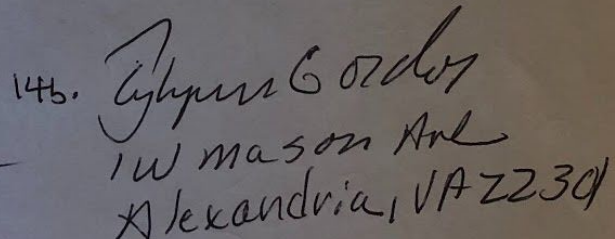 14b. Gordon
1W mason Ave
Alexandria, VA 22301